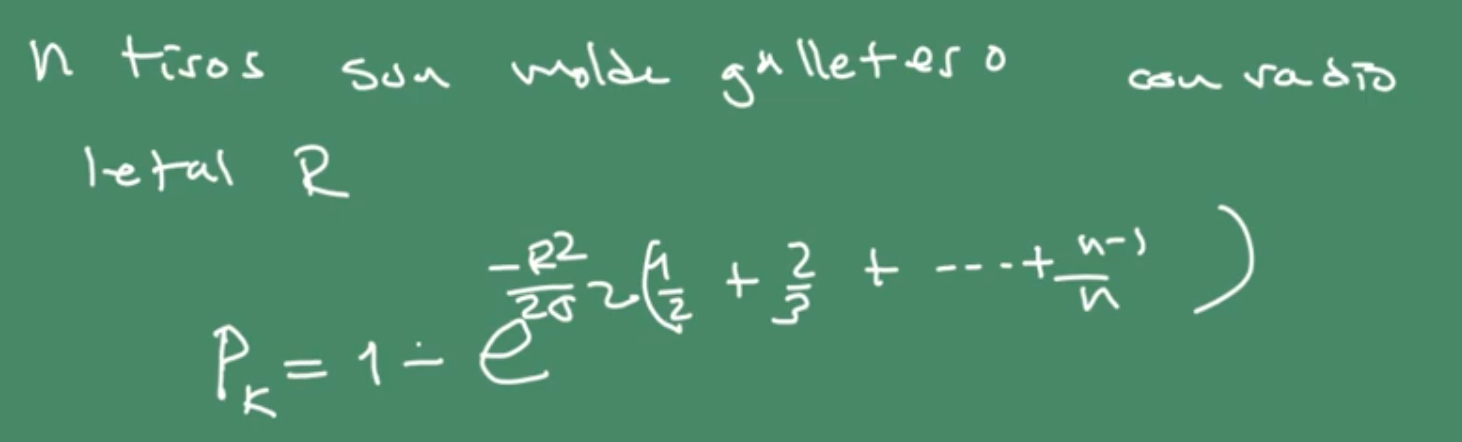 n tiros son molde galletero con radio
letal R
P_K = 1 - e^{\frac{-R^2}{2σ^2}(\frac{1}{2} + \frac{2}{3} + ---- + \frac{n-1}{n})}